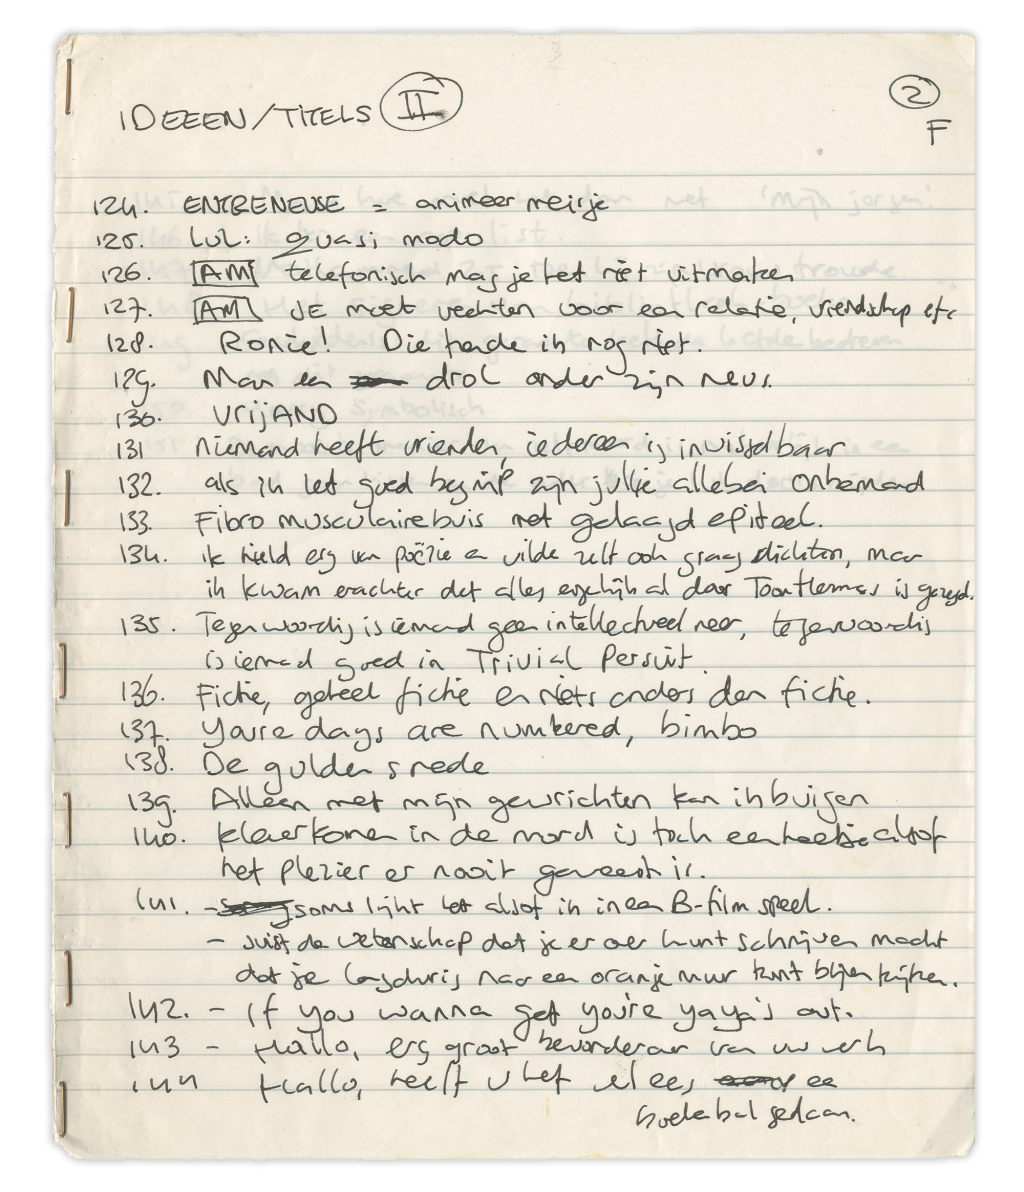 IDEEEN/TITELS II
2
F
124. ENTRENEUSE = animeer meisje
125. LUL: quasi modo
126. AM telefonisch mag je het niet uitmaken
127. AM JE moet vechten voor een relatie, vriendschap etc
128. Ronie! Die hende ik nog niet.
129. Man en drol onder zijn neus.
130. VRIJAND
131 niemand heeft vrienden, iedereen is inwisselbaar
132. als ik het goed begrijp zijn jullie allebei onbemand
133. Fibro musculaire buis met gelaagd epiteel.
134. ik hield erg van poëzie en wilde zelf ook graag dichten, maar
ik kwam erachter dat alles eigenlijk al door Toon Hermans is gezegd.
135. Tegenwoordig is iemand geen intellectueel meer, tegenwoordig
is iemand goed in Trivial Persuit.
136. Fictie, geheel fictie en niets anders dan fictie.
137. Youre days are numbered, bimbo
138. De gulden snede
139. Alleen met mijn gewrichten kan ik buigen
140. klaarkomen in de mond is toch een beetje alsof
het plezier er nooit geweest is.
141. - soms lijkt het alsof ik in een B-film speel.
- juist de wetenschap dat je er over kunt schrijven maakt
dat je langdurig naar een oranje muur kunt blijven kijken.
142. - If you wanna get you're yaya's out.
143 - Hallo, erg groot bewonderaar van uw werk
144 Hallo, heeft u het vlees een
boterbal gedaan.